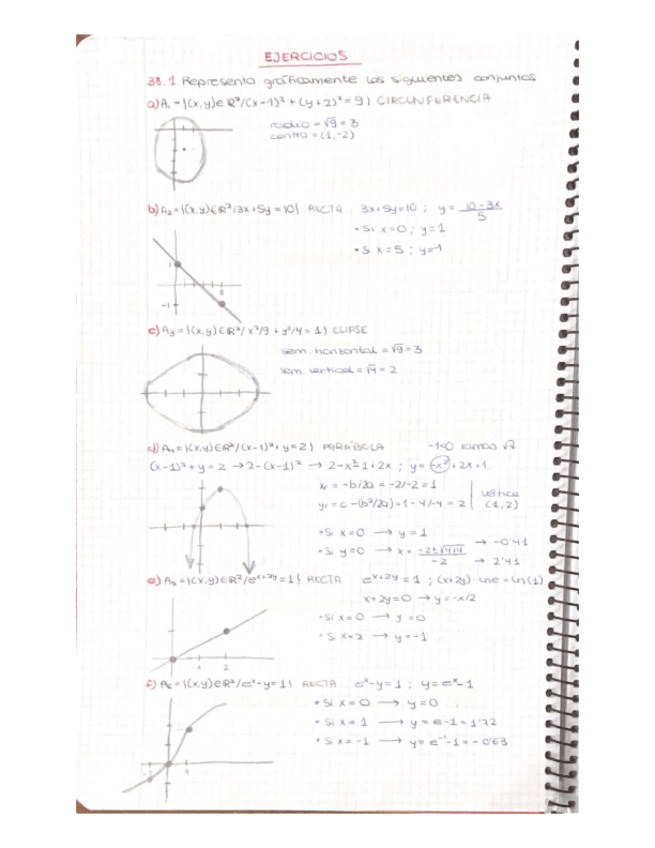 EJERCICIOS
38.1. Representa gráficamente los siguientes conjuntos
a) A₁ = {(x,y)∈ℝ²/(x-1)² + (y+2)² = 9} CIRCUNFERENCIA
radio = √9 = 3
centro = (1,-2)
b) A₂ = {(x,y)∈ℝ²/3x+5y=10} RECTA 3x+5y=10 ; y = (10-3x)/5
• Si x=0 ; y=1
• Si x=5 ; y=-1
1
5
-1
c) A₃ = {(x,y)∈ℝ²/x²/9 + y²/4 = 1} ELIPSE
sem. horizontal = √9 = 3
sem. vertical = √4 = 2
d) A₄ = {(x,y)∈ℝ²/(x-1)²+y=2} PARÁBOLA -1<0 ramas
(x-1)²+y=2 → 2-(x-1)² → 2-x²-1+2x ; y=-x²+2x+1
xᵥ = -b/2a = -2/-2 = 1
yᵥ = c-(b²/2a)=1-4/-4 = 2
vértice
(1,2)
• Si x=0 → y=1
• Si y=0 → x = (-2±√4+4)/-2 → -0'41
→ 2'41
e) A₅ = {(x,y)∈ℝ²/eˣ⁺²ʸ=1} RECTA eˣ⁺²ʸ=1 ; (x+2y)·lne = ln(1)
x+2y=0 → y=-x/2
• Si x=0 → y=0
• Si x=2 → y=-1
1 2
f) A₆ = {(x,y)∈ℝ²/eˣ-y=1} RECTA eˣ-y=1 ; y=eˣ-1
• Si x=0 → y=0
• Si x=1 → y=e-1=1'72
• Si x=-1 → y=e⁻¹-1=-0'63
1